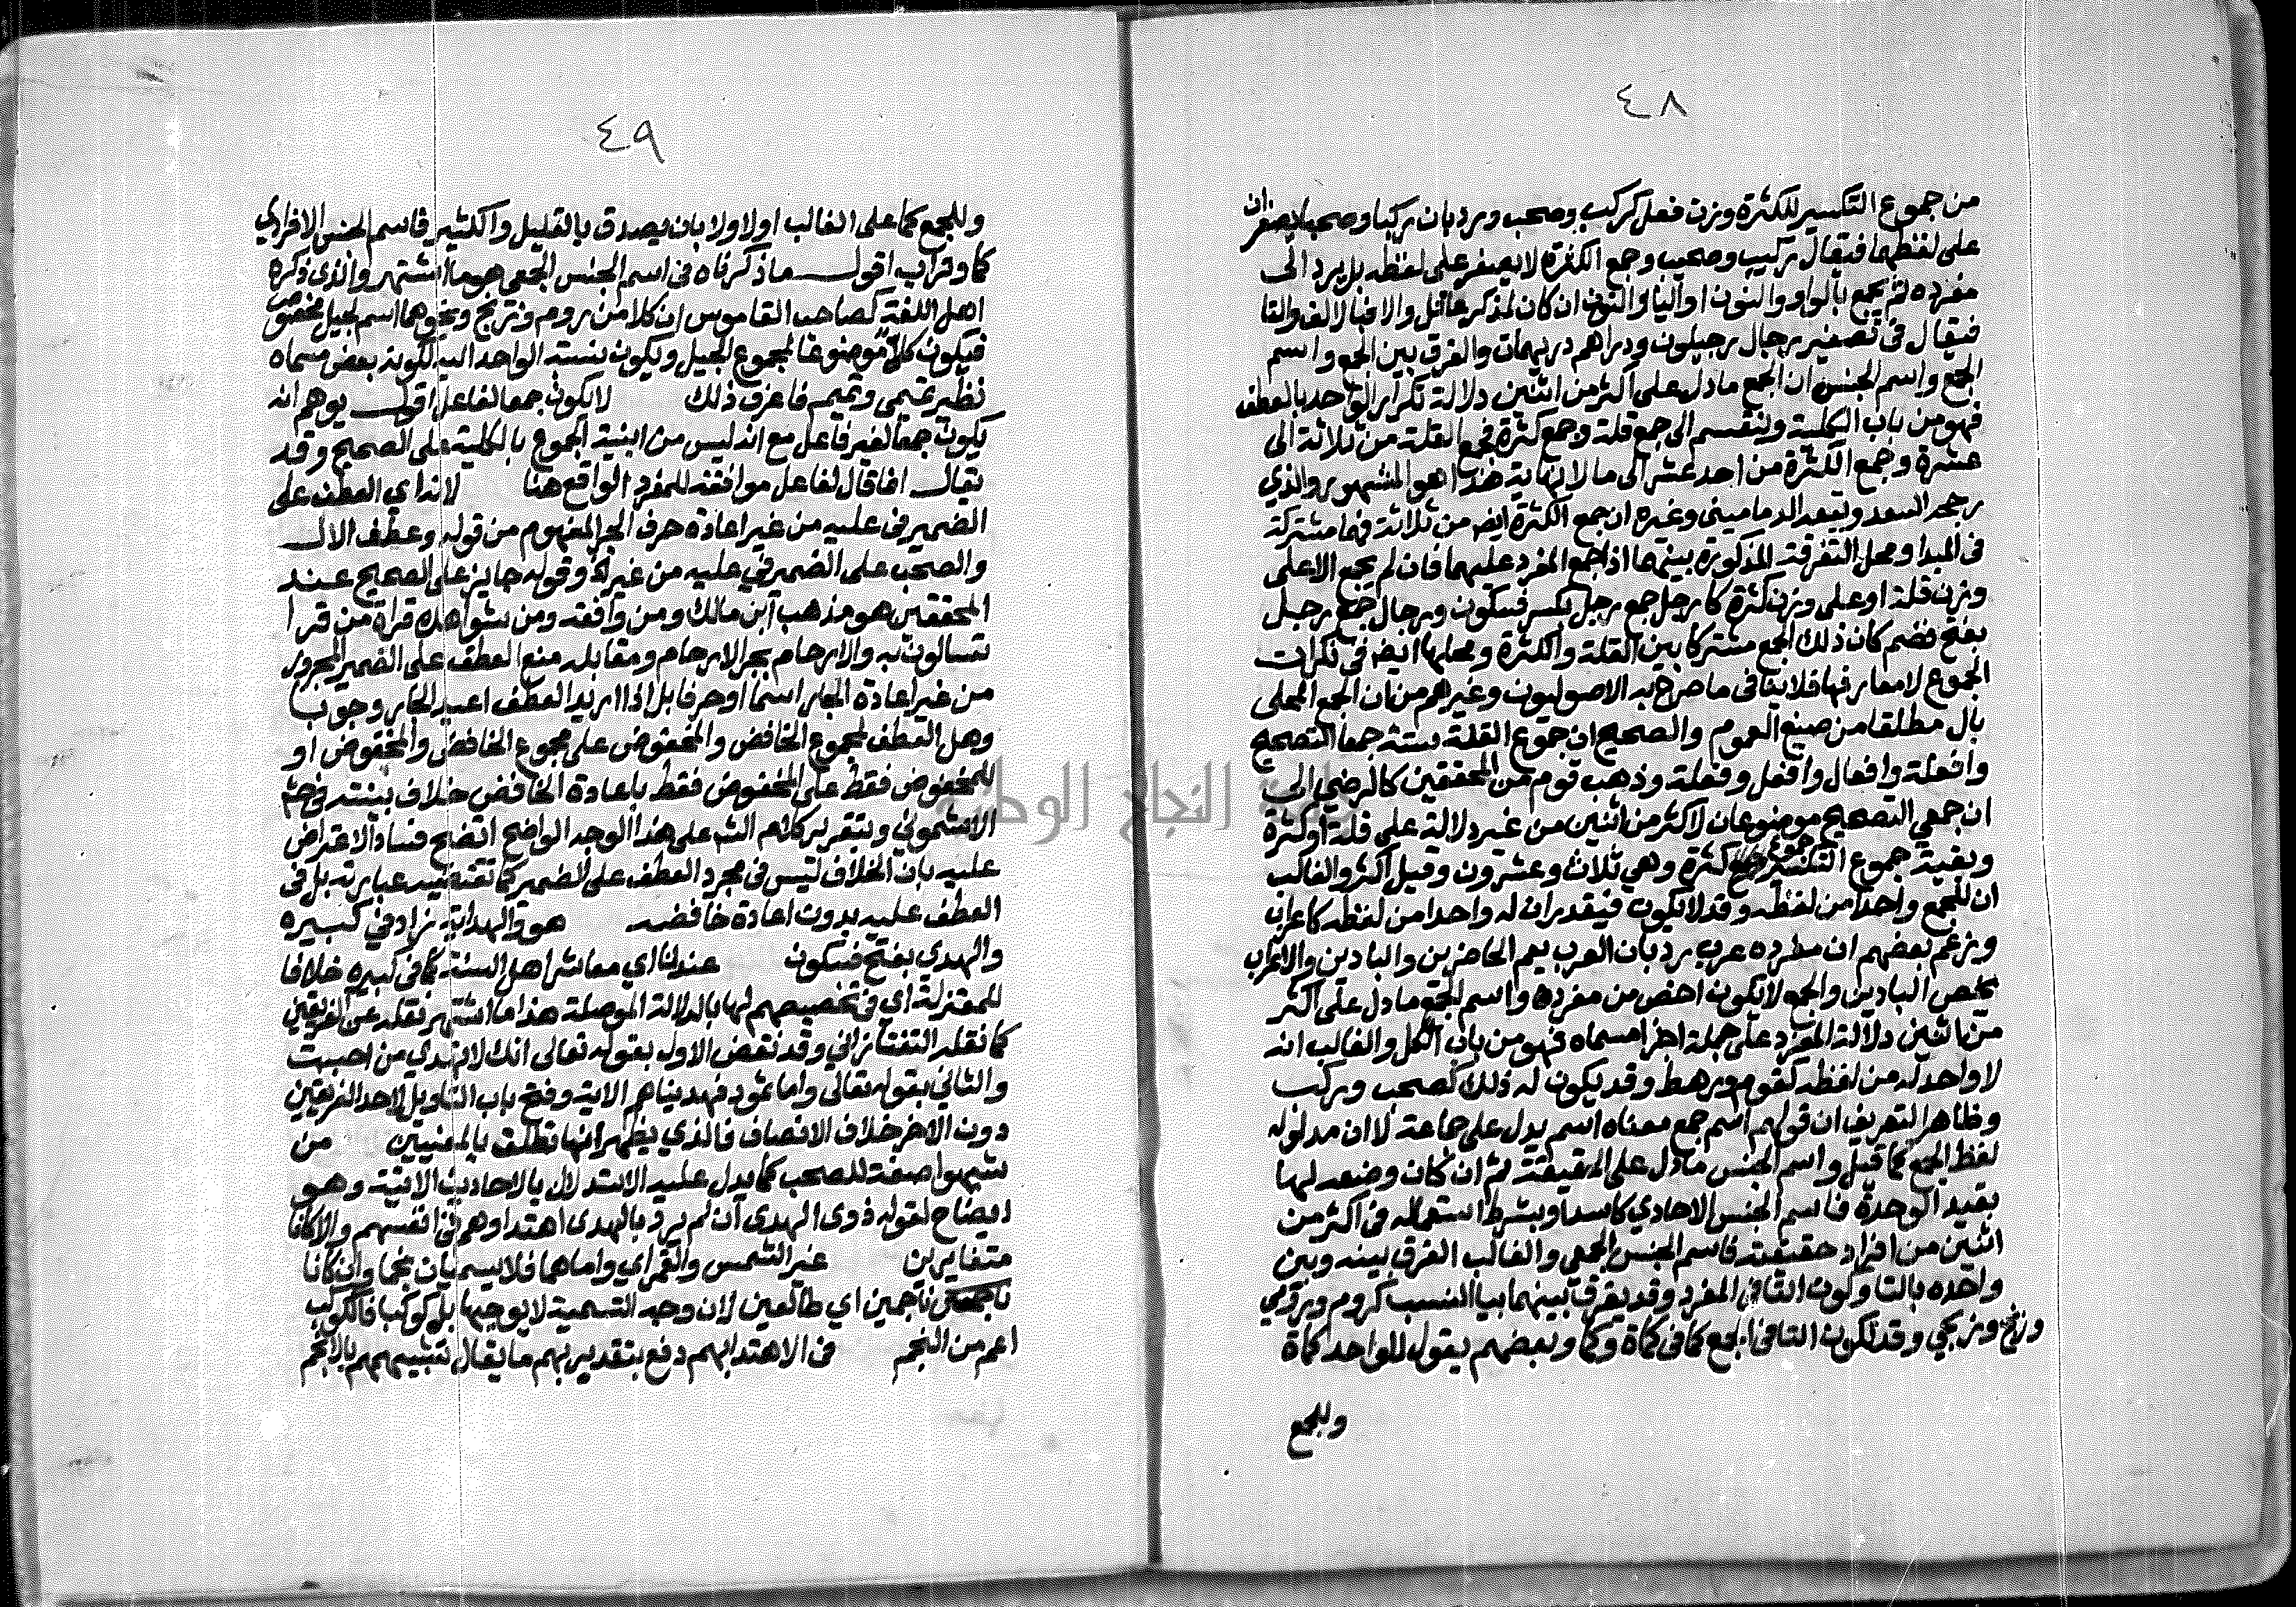 ٤٨
من جموع التكسير للكثرة وزن فعل كركب وصحب ورد بان ركبا وصحبا يصغران
على لفظهما فيقال ركيب وصحيب وجمع الكثرة لا يصغر على لفظه بل يرد الى
مفرده ثم يجمع بالواو والنون او اليا والنون ان كان لمذكر عاقل والا فبالالف والتا
فيقال في تصغير رجال رجيلون ودراهم دريهمات والفرق بين الجمع واسم
الجمع واسم الجنس ان الجمع ما دل على اكثر من اثنين دلالة تكرار الواحد بالعطف
فهو من باب الكلية وينقسم الى جمع قلة وجمع كثرة فجمع القلة من ثلاثة الى
عشرة وجمع الكثرة من احد عشر الى ما لا نهاية هذا هو المشهور والذي
رجحه السعد وتبعه الدماميني وغيره ان جمع الكثرة ايض من ثلاثة فهما مشتركة
في المبدا ومحل التفرقة المذكورة بينهما اذا جمع المفرد عليهما فان لم يجمع الا على
وزن قلة او على وزن كثرة كارجل جمع رجل بكسر فسكون ورجال جمع رجل
بفتح فضم كان ذلك الجمع مشتركا بين القلة والكثرة ومحلها ايض في نكرات
الجموع لا معارفها فلا ينافي ما صرح به الاصوليون وغيرهم من ان الجمع المحلى
بال مطلقا من صيغ العموم والصحيح ان جموع القلة ستة جمعا التصحيح
وافعلة وافعال وافعل وفعلة وذهب قوم من المحققين كالرضي الى
ان جمعي التصحيح موضوعان لاكثر من اثنين من غير دلالة على قلة او كثرة
وبقية جموع التكسير جموع كثرة وهي ثلاث وعشرون وقيل اكثر والغالب
ان للجمع واحدا من لفظه وقد لا يكون فيقدر ان له واحدا من لفظه كاعراب
وزعم بعضهم ان مفرده عرب رد بان العرب يعم الحاضرين والبادين والاعراب
يخص البادين والجمع لا يكون اخص من مفرده واسم الجمع ما دل على اكثر
من اثنين دلالة المفرد على جملة اجزا مسماه فهو من باب الكل والغالب انه
لا واحد له من لفظه كقوم ورهط وقد يكون له ذلك كصحب وركب
وظاهر التعريف ان قولهم اسم جمع معناه اسم يدل على جماعة لا ان مدلوله
لفظ الجمع كما قيل واسم الجنس ما دل على الحقيقة ثم ان كان وضعه لها
بقيد الوحدة فاسم الجنس الاحادي كاسد او بشرط استعماله في اكثر من
اثنين من افراد حقيقته فاسم الجنس الجمعي والغالب الفرق بينه وبين
واحده بالتا وكون التا في المفرد وقد يفرق بينهما بيا النسب كروم ورومي
وزنج وزنجي وقد تكون التا في الجمع كما في كماة وكما وبعضهم يقول للواحد كماة
وللجمع
٤٩
وللجمع كما على الغالب اولا ولا بان يصدق بالقليل والكثير فاسم الجنس الافرادي
كما وتراب اقول ما ذكرناه في اسم الجنس الجمعي هو ما اشتهر والذي ذكره
اهل اللغة كصاحب القاموس ان كلا من روم وزنج ونحوهما اسم لجيل مخصوص
فيكون كل موضوعا لمجموع الجيل ويكون نسبة الواحد اليه لكونه بعض مسماه
نظير تميمي وتميم فاعرف ذلك لا يكون جمعا لفاعل اقول يوهم انه
يكون جمعا لغير فاعل مع انه ليس من ابنية الجموع بالكلية على الصحيح وقد
يقال انما قال لفاعل موافقة للمفرد الواقع هنا لانه اي العطف على
الضمير في عليه من غير اعادة حرف الجر المفهوم من قوله وعطف الال
والصحب على الضمير في عليه من غير الخ وقوله جايز على الصحيح عند
المحققين هو مذهب ابن مالك ومن وافقه ومن شواهده قراة من قرا
تسالون به والارحام بجر الارحام ومقابله منع العطف على الضمير المجرور
من غير اعادة الجار اسما او حرفا بل اذا اريد العطف اعيد الجار وجوبا
وهل العطف لمجموع الخافض والمخفوض على مجموع الخافض والمخفوض او
للمخفوض فقط على المخفوض فقط باعادة الخافض خلاف بينته في حش
الاشموني وبتقرير كلام الش على هذا الوجه الواضح اتضح فساد الاعتراض
عليه بان الخلاف ليس في مجرد العطف على الضمير كما تقتضيه عبارته بل في
العطف عليه بدون اعادة خافضه هو والهداية زاد في كبيره
والهدي بفتح فسكون عندنا اي معاشر اهل السنة كما في كبيره خلافا
للمعتزلة اي في تخصيصهم لها بالدلالة الموصلة هذا ما اشتهر نقله عن الفريقين
كما نقله التفتازاني وقد نقض الاول بقوله تعالى انك لا تهدي من احببت
والثاني بقوله تعالى واما ثمود فهديناهم الاية وفتح باب التاويل لاحد الفريقين
دون الاخر خلاف الانصاف فالذي يظهر انها تطلق بالمعنيين من
شبهوا صفة للصحب كما يدل عليه الاستدلال بالاحاديث الاتية وهو
ايضاح لقوله ذوى الهدى ان لم يرد بالهدى اهتداوهم في انفسهم والا كانا
متغايرين غير الشمس والقمر اي واما هما فلا يسميان نجما وان كانا
ناجمين اي طالعين لان وجه التسمية لا يوجبها بل كوكبا فالكوكب
اعم من النجم في الاهتدا بهم دفع بتقدير بهم ما يقال تشبيههم بالانجم